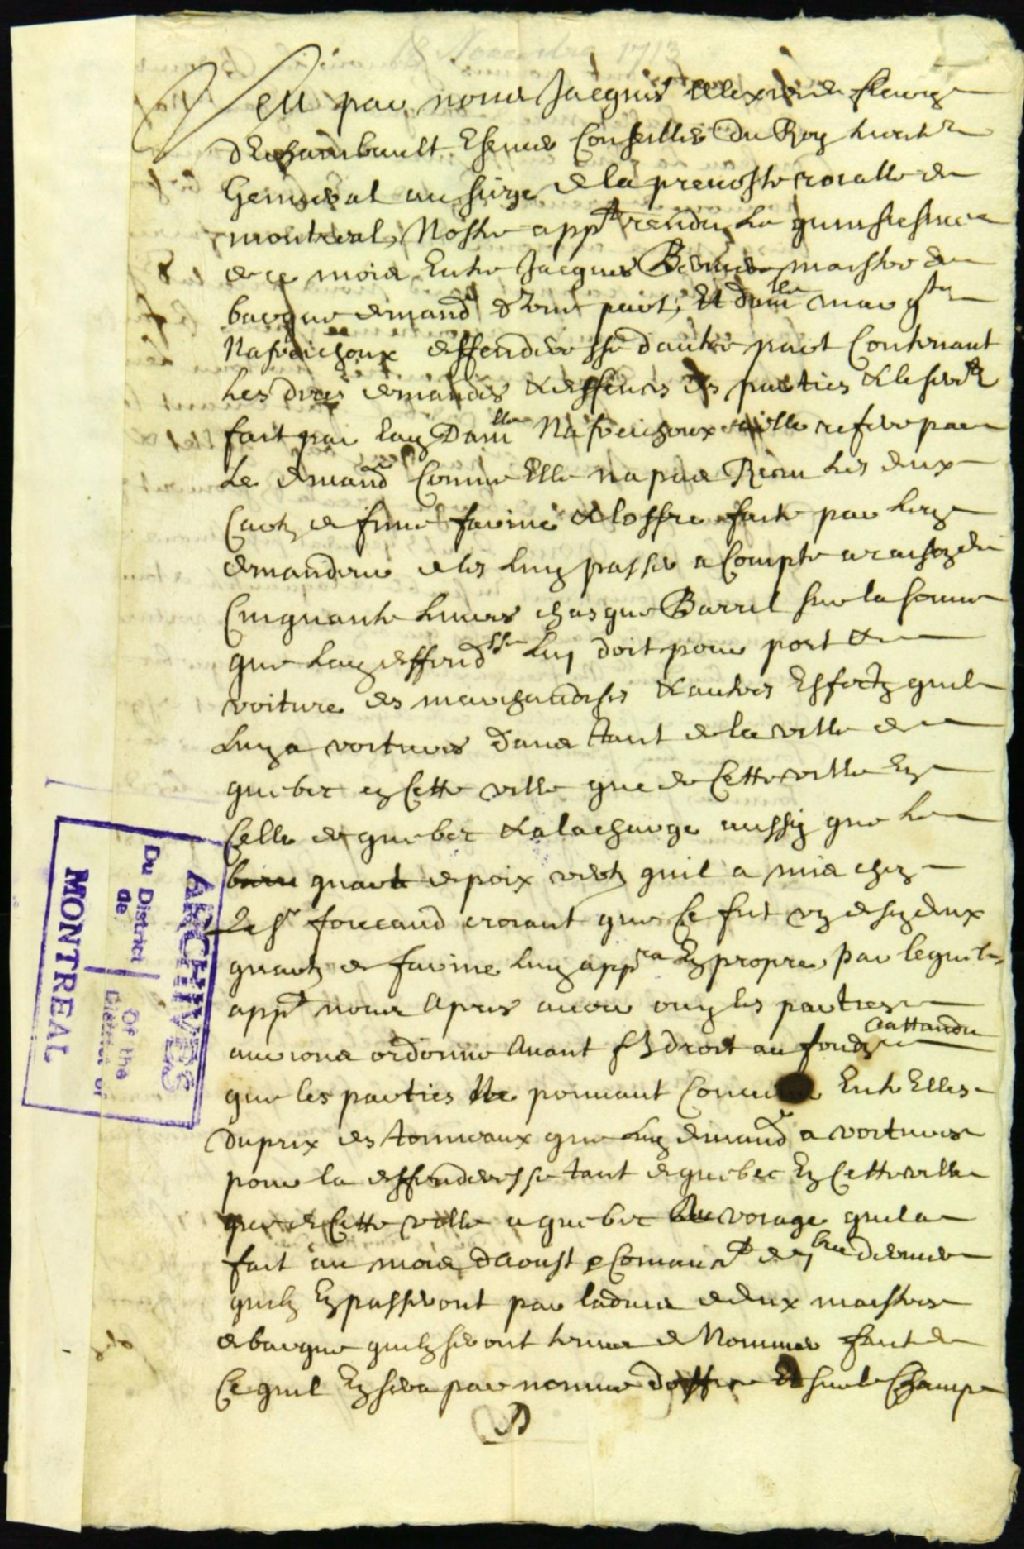 18 Novembre 1713
Veu par nous Jacques Alexis de fleury
d'Eschambault Escuier Conseiller du Roy lieut.
General au siege de la prevosté roialle de
montreal, Nostre app.t rendu le quinsiesme
de ce mois Entre Jacques maistre de
barque demand.r d'une part, Et dam.lle marg.tte
Nafrechoux deffenderesse d'autre part Contenant
Les dires demandes & deffences des parties & le
fait par lad. Dam.lle Nafrechoux refere par
Le demand.r Comme Elle na pas Receu Les deux
Cartz de farine & loffre faite par led.
demandeur de les luy passer a Compte a raison de
Cinquante livres chasque Barril sur la somme
que lad. deffend.sse Luy doit pour port &
voiture des marchandises & autres Effectz quil
Luy a voitures dans tant de la ville de
quebec en Cette ville que de Cette ville En
Celle de quebec & a la charge aussy que le
quart de poix vertz quil a mis chez
Le S.r foucaud croiant que Ce fut un de ses deux
quartz de farine luy app.ra En propre, par lequel
app.t nous apres avoir ouy les parties
aurions ordonné avant f.e droit au fondz attandu
que les parties ne pouvant Entre Elles
du prix des tonneaux que led. demand.r a voitures
pour la deffenderesse tant de quebec En Cette ville
que de Cette ville a quebec voiage quil a
fait au mois d'aoust & Comanc.t de 7bre dernier
quilz En passeront par ladvis de deux maistres
de barque quilz seront tenus de Nommer faute de
Ce quil En sera par nous nommé d'office Et sur le Champ
ARCHIVES
Du District | Of the
de | District of
MONTREAL